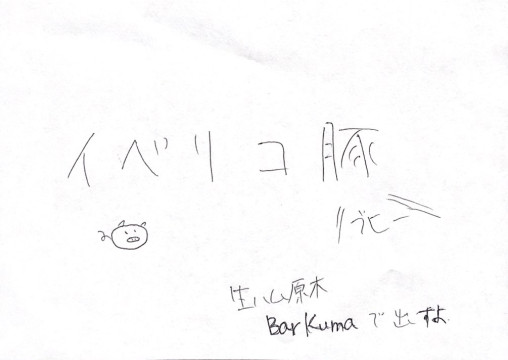 イベリコ豚
ブヒー
生ハム原木
BarKumaで出すよ